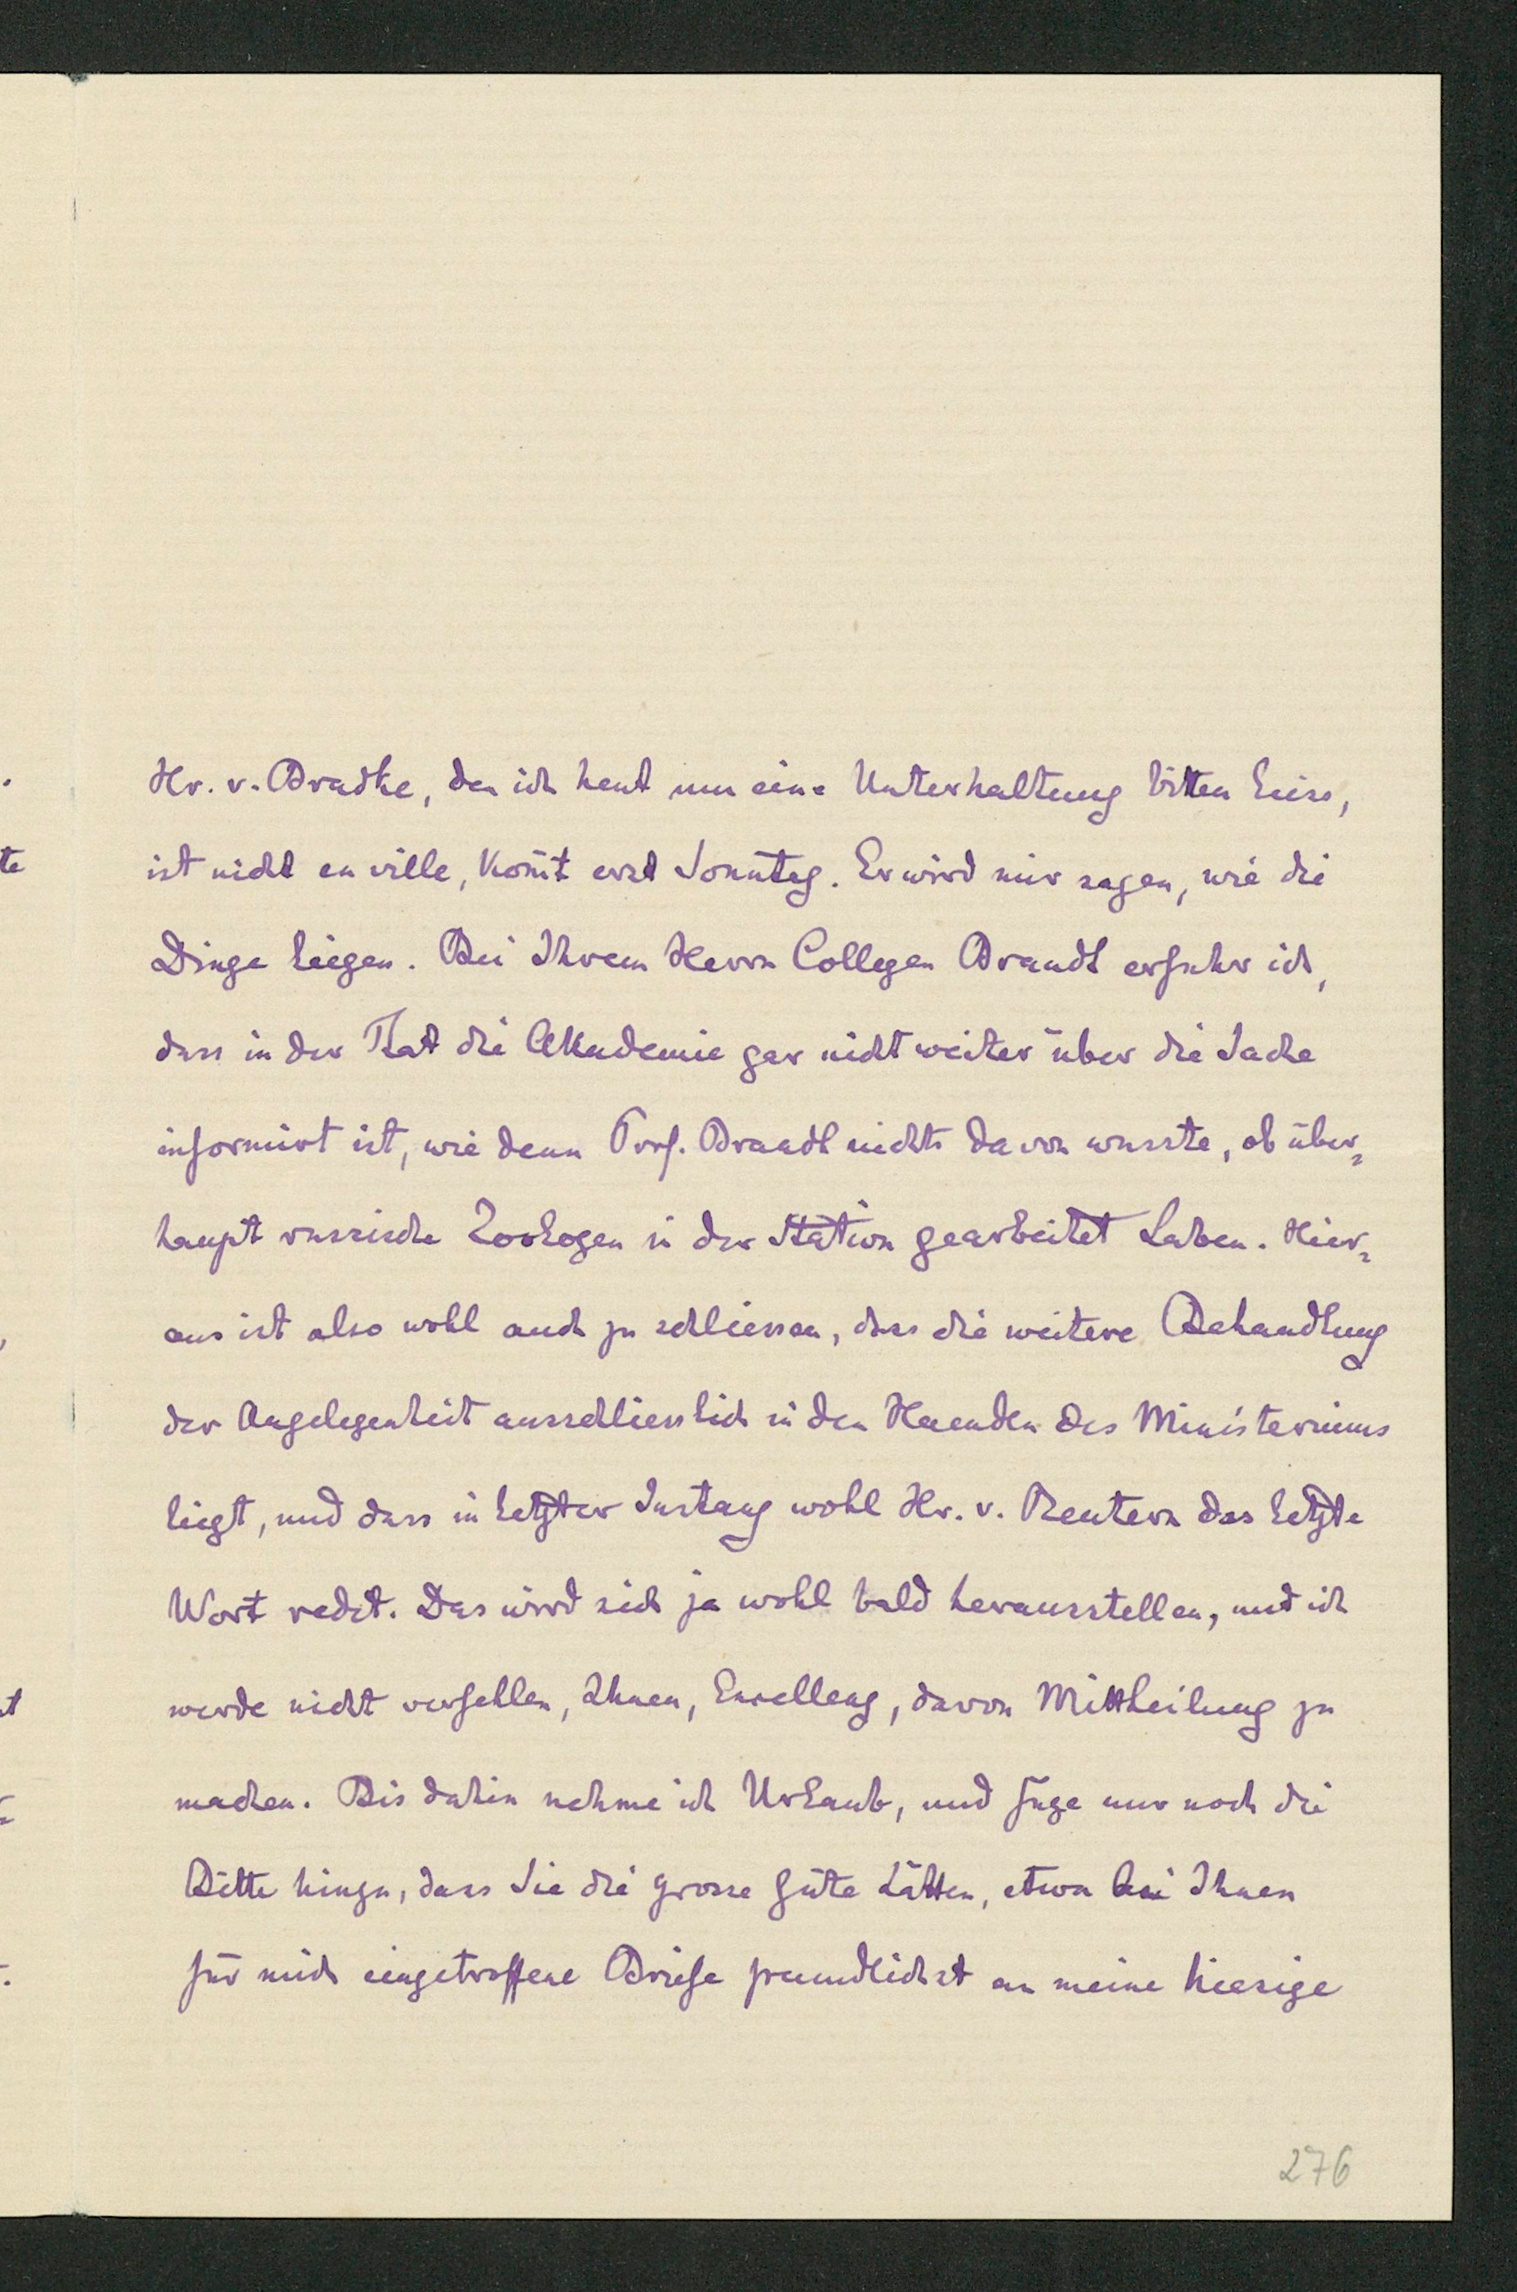 Hr. v. Bradke, den ich heut um eine Unterhaltung bitten liess,
ist nicht en ville, kom̄t erst Son̄tag. Er wird mir sagen, wie die
Dinge liegen. Bei Ihrem Herrn Collegen Brandt erfuhr ich,
dass in der That die Akademie gar nicht weiter über die Sache
informirt ist, wie denn Prof. Brandt nichts davon wusste, ob über-
haupt russische Zoologen in der Station gearbeitet haben. Hier-
aus ist also wohl auch zu schliessen, dass die weitere Behandlung
der Angelegenheit ausschliesslich in den Haenden des Ministeriums
liegt, und dass in letzter Instanz wohl Hr. v. Reutern das letzte
Wort redet. Das wird sich ja wohl bald herausstellen, und ich
werde nicht verfehlen, Ihnen, Excellenz, davon Mittheilung zu
machen. Bis dahin nehme ich Urlaub, und füge nur noch die
Bitte hinzu, dass Sie die grosse Güte hätten, etwa bei Ihnen
für mich eingetroffene Briefe freundlichst an meine hiesige
276